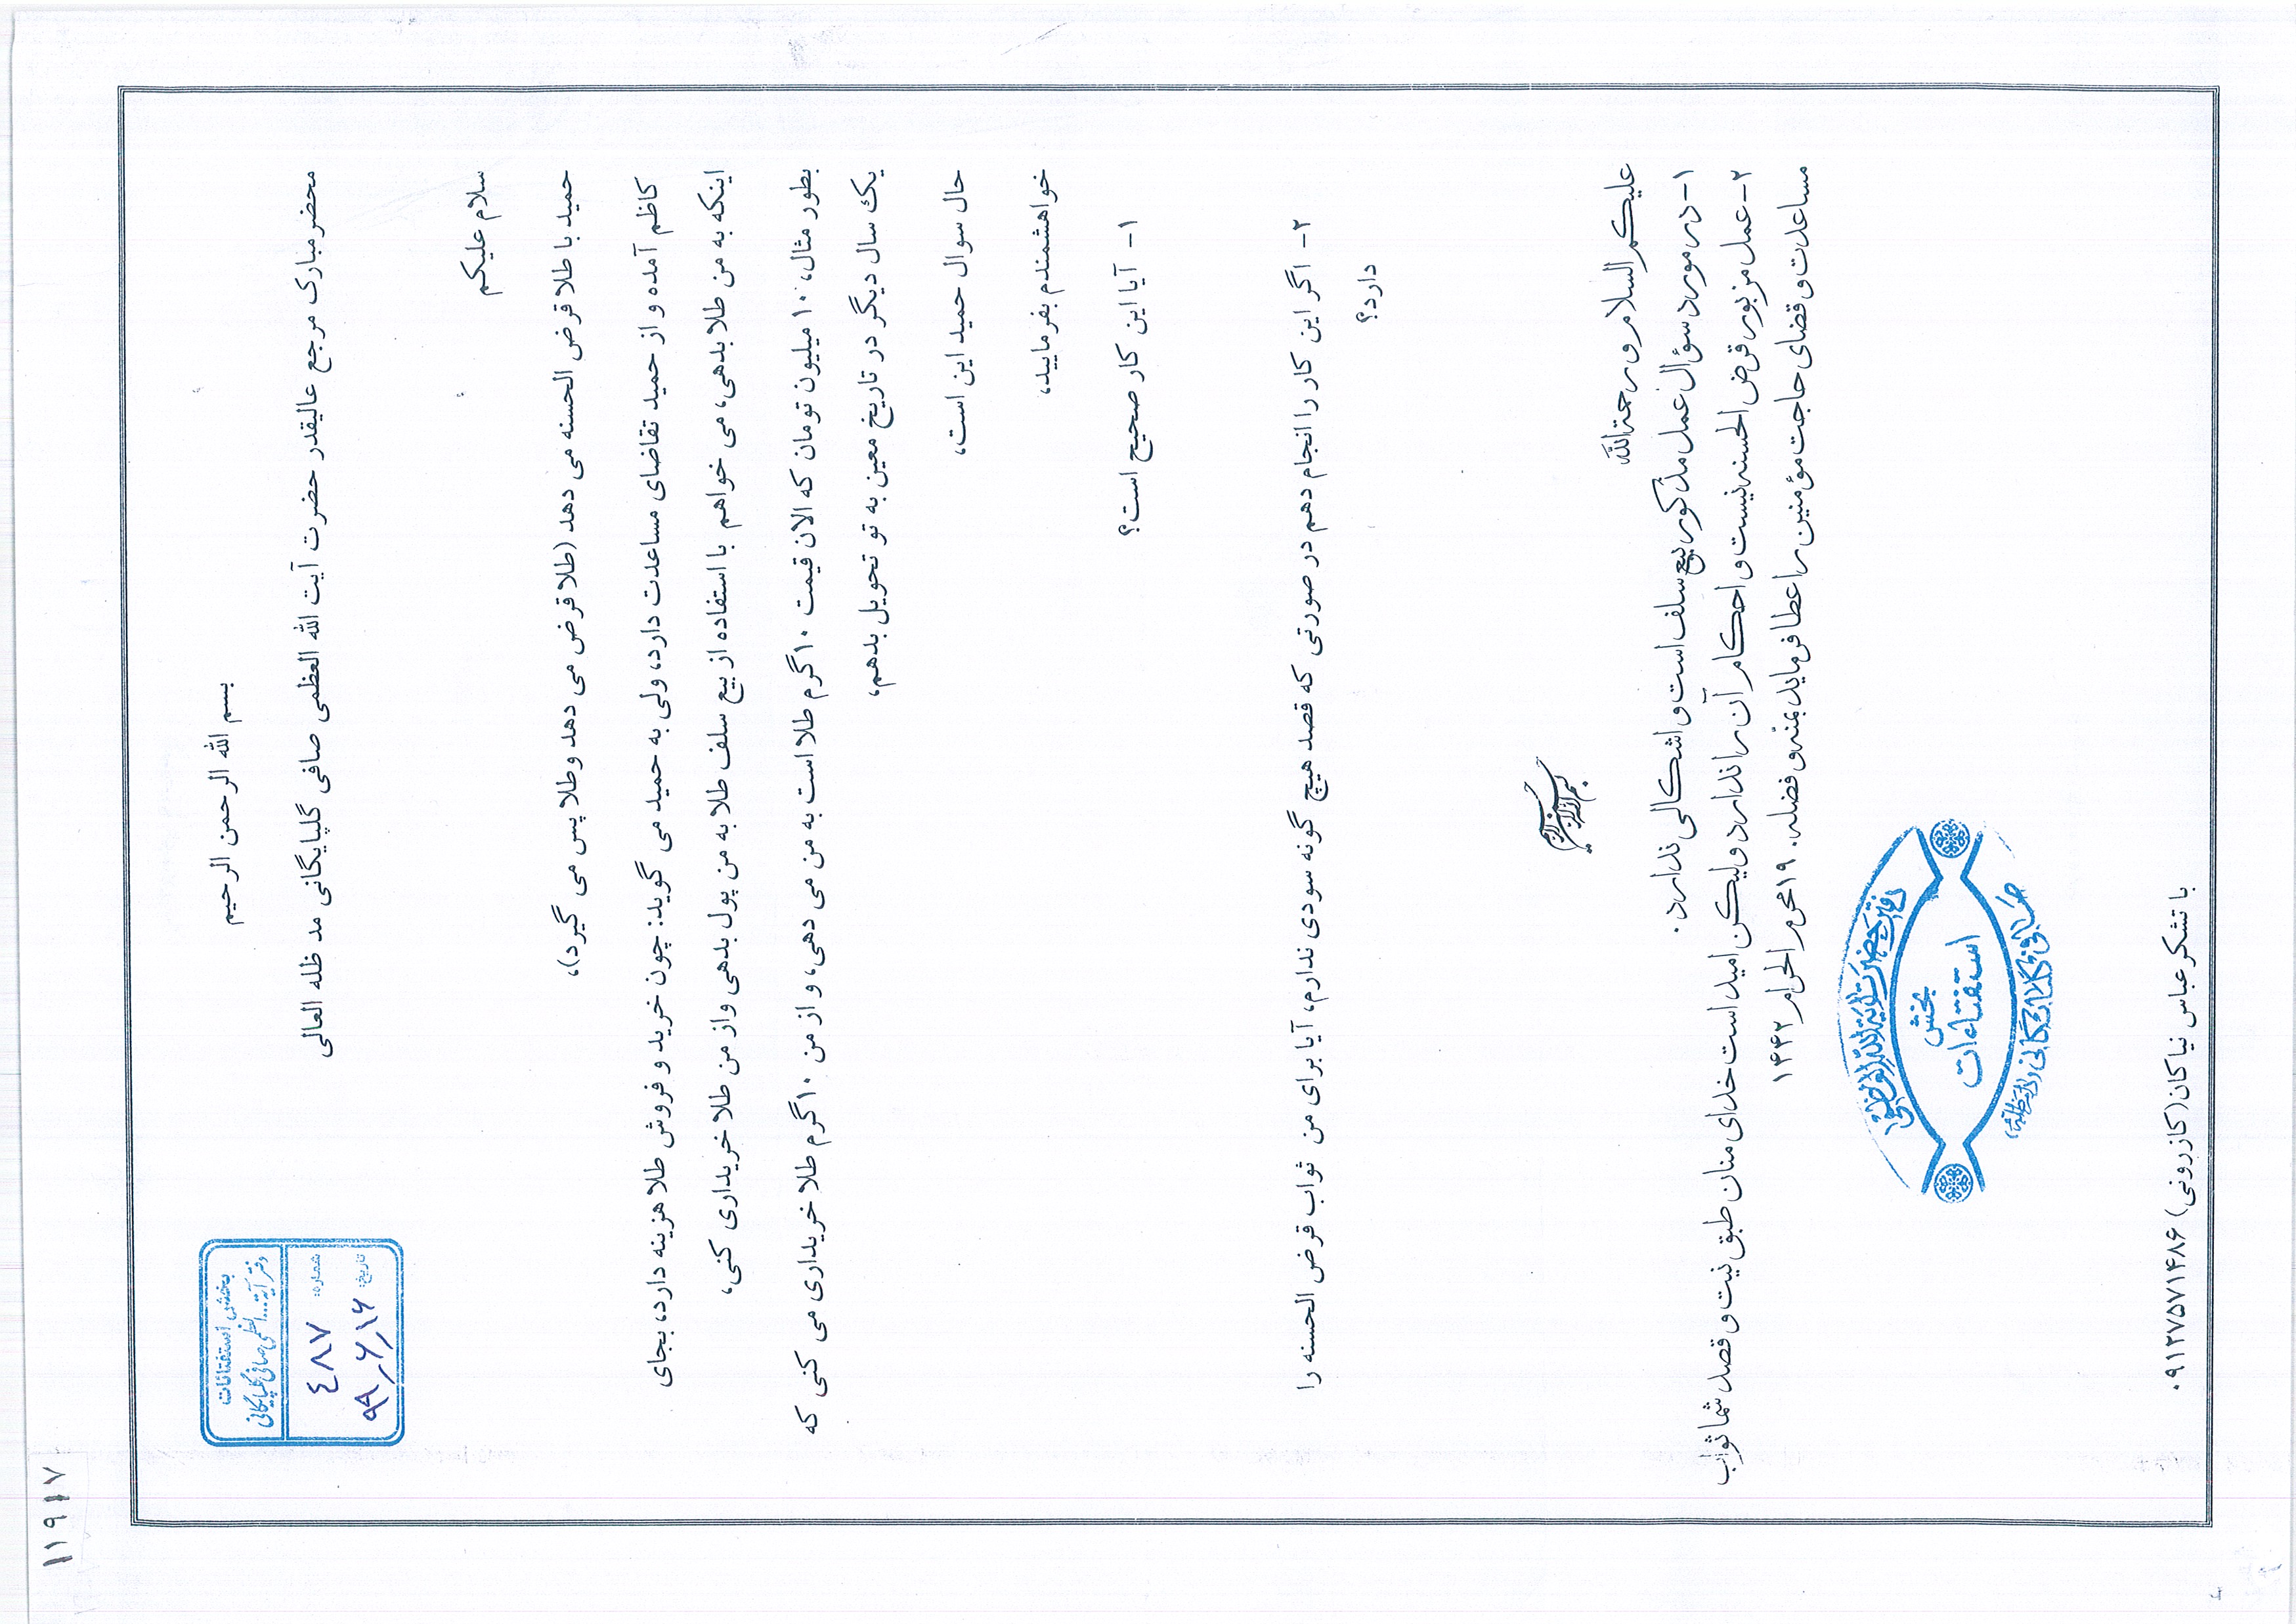 ۱۱۹۱۷
بخش استفتائات
دفتر آیة... العظمی صافی گلپایگانی
شماره: ٤٨٧
تاریخ: ۹۹٫۶٫۱۶
بسم الله الرحمن الرحیم
محضر مبارک مرجع عالیقدر حضرت آیت الله العظمی صافی گلپایگانی مد ظله العالی
سلام علیکم
حمید با طلا قرض الحسنه می دهد (طلا قرض می دهد وطلا پس می گیرد)،
کاظم آمده و از حمید تقاضای مساعدت دارد، ولی به حمید می گوید: چون خرید و فروش طلا هزینه دارد، بجای
اینکه به من طلا بدهی، می خواهم با استفاده از بیع سلف طلا به من پول بدهی واز من طلا خریداری کنی،
بطور مثال، ۱۰ میلیون تومان که الان قیمت ۱۰ گرم طلا است به من می دهی، و از من ۱۰ گرم طلا خریداری می کنی که
یک سال دیگر در تاریخ معین به تو تحویل بدهم،
حال سوال حمید این است،
خواهشمندم بفرمایید،
۱- آیا این کار صحیح است؟
۲- اگر این کار را انجام دهم در صورتی که قصد هیچ گونه سودی ندارم، آیا برای من ثواب قرض الحسنه را
دارد؟
علیکم السلام و رحمة الله
۱- در مورد سؤال عمل مذکور بیع سلف است و اشکالی ندارد.
۲- عمل مزبور قرض الحسنه نیست و احکام آن را ندارد ولیکن امید است خدای منان طبق نیت و قصد شما ثواب
مساعدت و قضای حاجت مؤمنین را عطا فرماید بمنّه و فضله. ۱۹ محرم الحرام ۱۴۴۲
بخش
استفتاءات
با تشکر عباس نیاکان (کازرونی) ۰۹۱۲۷۵۷۱۴۸۶